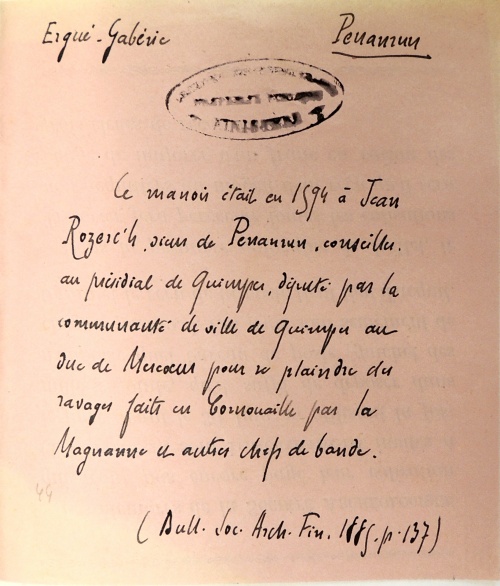 Ergué-Gabéric
Penanrun
FINISTERE
Ce manoir était en 1594 à Jean
Rozerc'h, sieur de Penanrun, conseiller
au présidial de Quimper, député par la
communauté de ville de Quimper au
duc de Mercœur pour se plaindre des
ravages faits en Cornouaille par la
Magnanne et autres chefs de bande.
44
(Bull. Soc. Arch. Fin. 1885. p. 137)